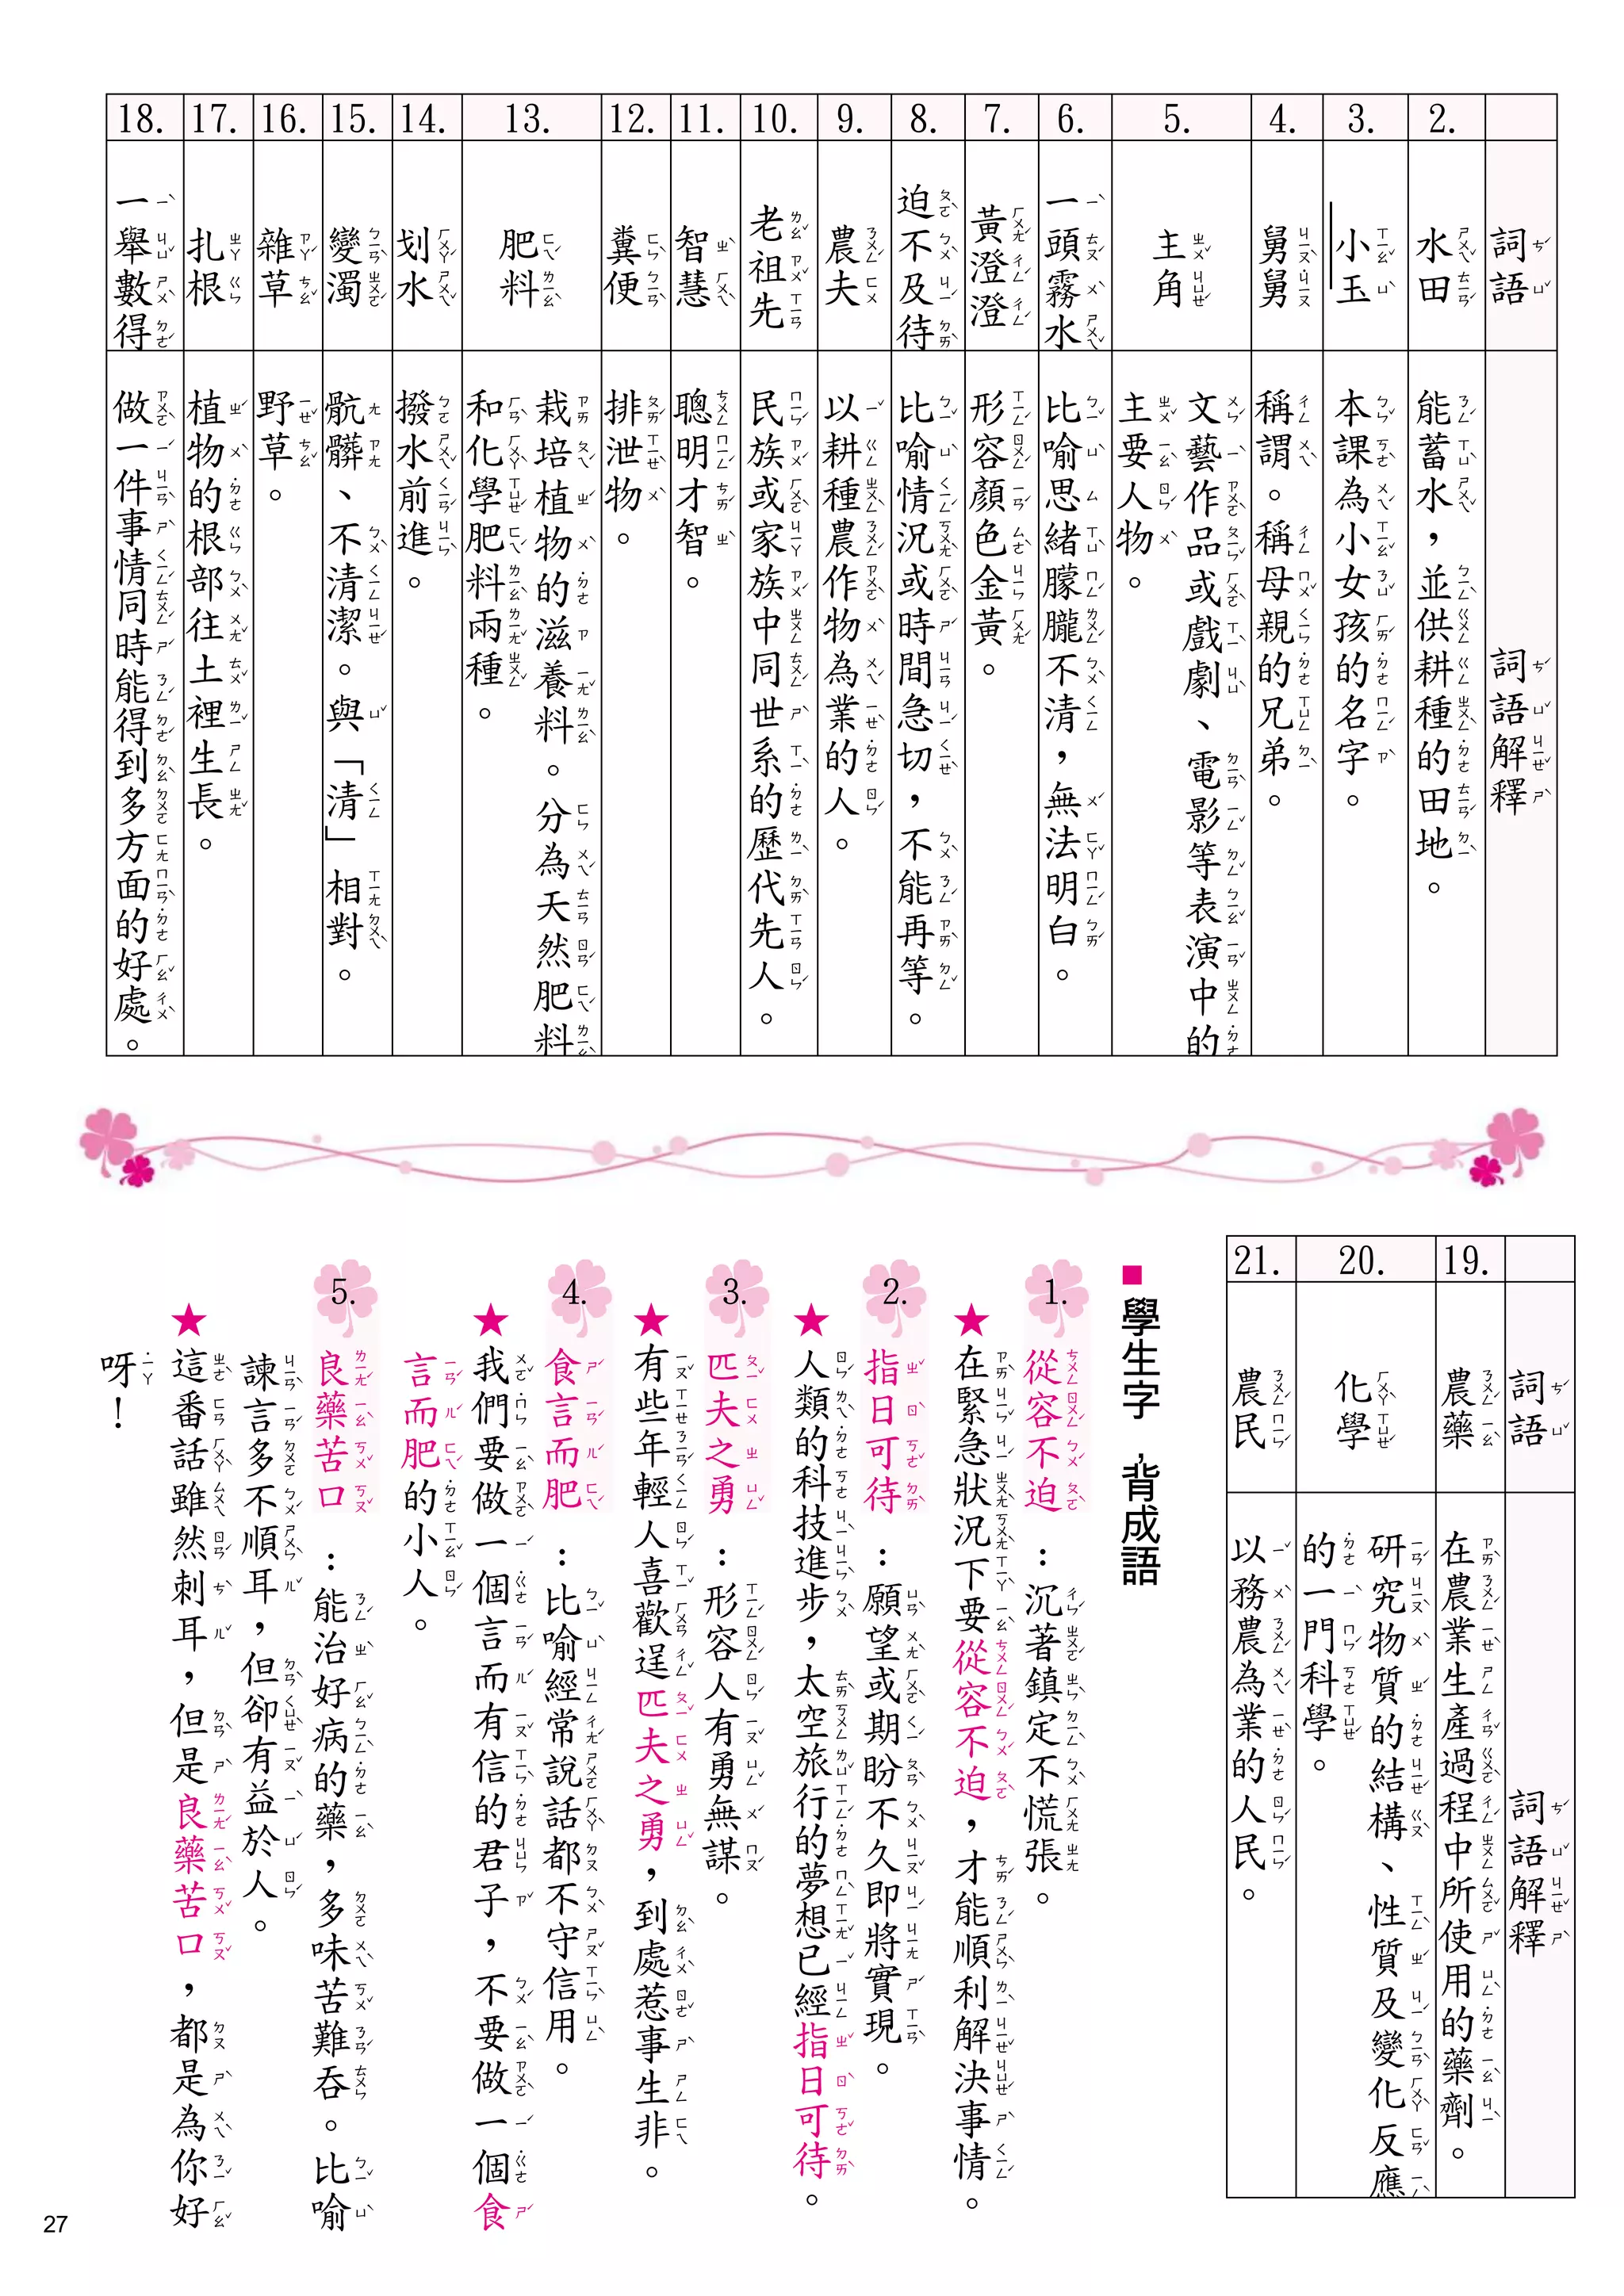 詞語
詞語解釋
2.
水田
能蓄水，並供耕種的田地。
3.
小玉
本課為小女孩的名字。
4.
舅舅
稱謂。稱母親的兄弟。
5.
主角
文藝作品或戲劇、電影等表演中的
主要人物。
6.
一頭霧水
比喻思緒朦朧不清，無法明白。
7.
黃澄澄
形容顏色金黃。
8.
迫不及待
比喻情況或時間急切，不能再等。
9.
農夫
以耕種農作物為業的人。
10.
老祖先
民族或家族中同世系的歷代先人。
11.
智慧
聰明才智。
12.
糞便
排泄物。
13.
肥料
栽培植物的滋養料。分為天然肥料
和化學肥料兩種。
14.
划水
撥水前進。
15.
變濁
骯髒、不清潔。與「清」相對。
16.
雜草
野草。
17.
扎根
植物的根部往土裡生長。
18.
一舉數得
做一件事情同時能得到多方面的好處。
詞語
詞語解釋
19.
農藥
在農業生產過程中所使用的藥劑。
20.
化學
研究物質的結構、性質及變化反應
的一門科學。
21.
農民
以務農為業的人民。
■學生字，背成語
1.
從容不迫：沉著鎮定不慌張。
★在緊急狀況下要從容不迫，才能順利解決事情。
2.
指日可待：願望或期盼不久即將實現。
★人類的科技進步，太空旅行的夢想已經指日可待。
3.
匹夫之勇：形容人有勇無謀。
★有些年輕人喜歡逞匹夫之勇，到處惹事生非。
4.
食言而肥：比喻經常說話都不守信用。
★我們要做一個言而有信的君子，不要做一個食
言而肥的小人。
5.
良藥苦口：能治好病的藥，多味苦難吞。比喻
諫言多不順耳，但卻有益於人。
★這番話雖然刺耳，但是良藥苦口，都是為你好
呀！
27